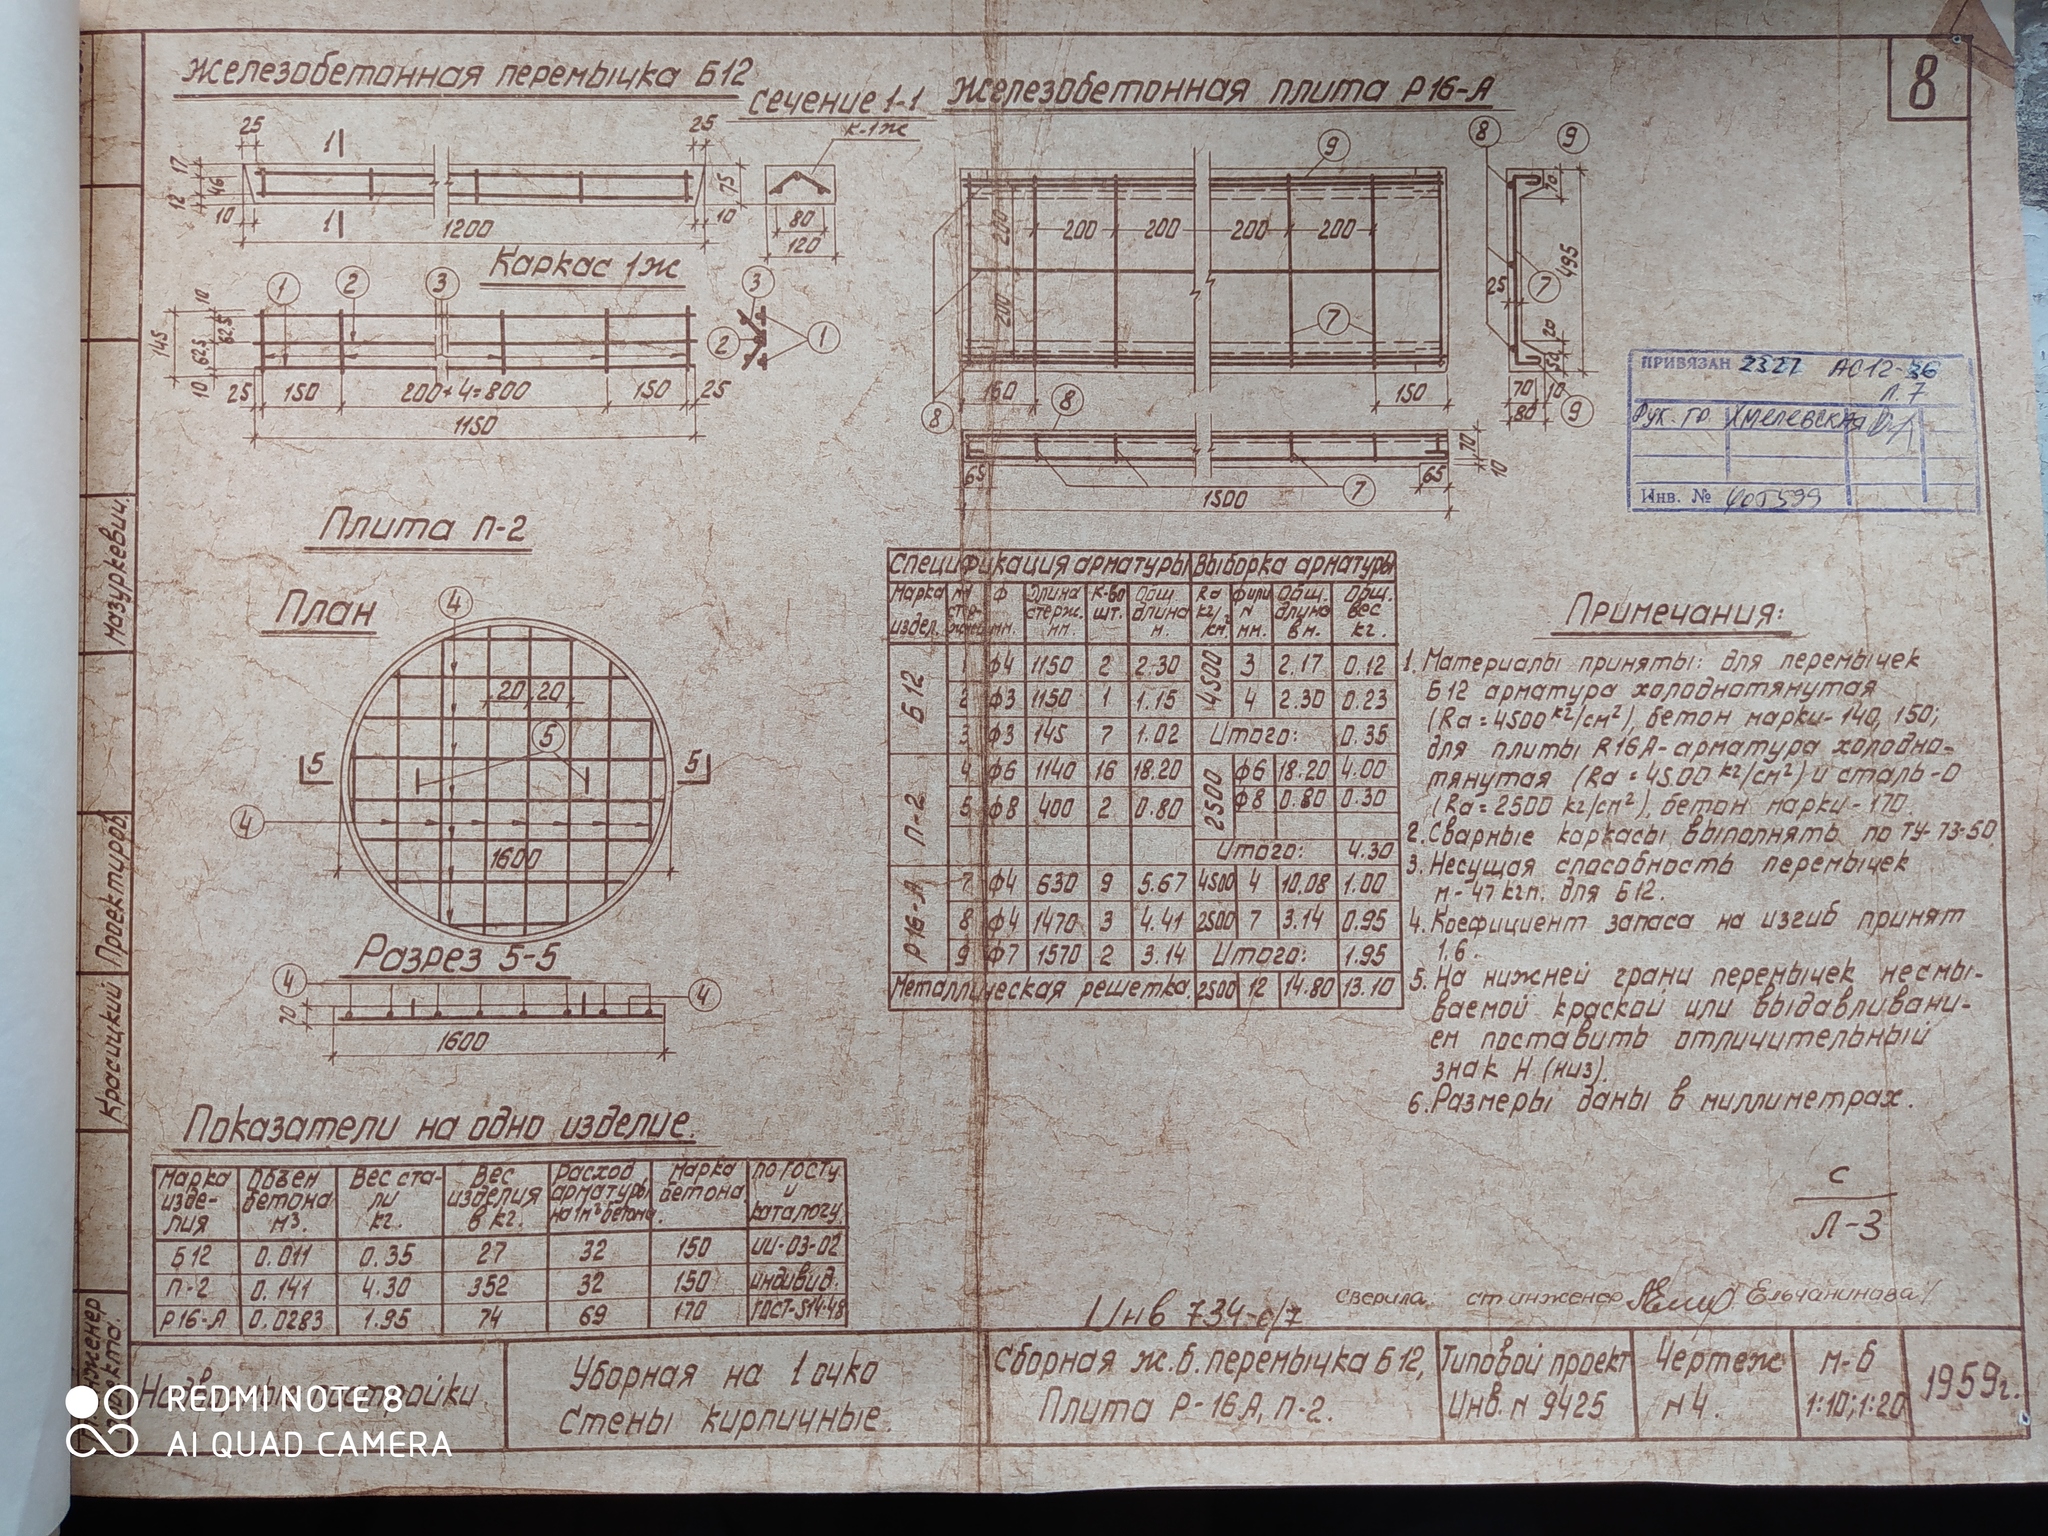 8
Железобетонная перемычка Б12
Сечение 1-1
к-1ж
Железобетонная плита Р16-А
25
1
25
17
46
12
10
1
1200
10
75
80
120
Каркас 1ж
1
2
3
3
2
1
10
62,5
62,5
10
145
25
150
200+4=800
150
25
1150
9
8
9
200
200
200
200
200
200
7
8
8
150
70
495
25
7
20
70
10
80
9
65
65
70
10
1500
7
ПРИВЯЗАН 2327 АС12-36
Л. 7
Рук. гр. Хмелевская
Инв. № 405599
Плита П-2
План
4
20 20
5
5
5
4
1600
Разрез 5-5
4
4
70
1600
Спецификация арматуры
Выборка арматуры
Марка издел. Ф мм. Длина стерж. мм К-во шт. Общ. длина м. Ra кг/см² Общ. длина в м. Общ. вес кг.
Б 12
1 ф4 1150 2 2.30 4500 3 2.17 0.12
2 ф3 1150 1 1.15 4 2.30 0.23
3 ф3 145 7 1.02 Итого: 0.35
П-2
4 ф6 1140 16 18.20 2500 ф6 18.20 4.00
5 ф8 400 2 0.80 ф8 0.80 0.30
Итого: 4.30
Р16-А
7 ф4 630 9 5.67 4500 4 10.08 1.00
8 ф4 1470 3 4.41 2500 7 3.14 0.95
9 ф7 1570 2 3.14 Итого: 1.95
Металлическая решетка. 2500 12 14.80 13.10
Примечания:
1. Материалы приняты: для перемычек
Б12 арматура холоднотянутая
(Ra = 4500 кг/см²), бетон марки- 140, 150;
для плиты R16А- арматура холодно-
тянутая (Ra = 4500 кг/см²) и сталь-0
(Ra = 2500 кг/см²), бетон марки- 170.
2. Сварные каркасы выполнять по ТУ-73-50.
3. Несущая способность перемычек
м- 47 кгм. для Б12.
4. Коефициент запаса на изгиб принят
1.6.
5. На нижней грани перемычек несмы-
ваемой краской или выдавливани-
ем поставить отличительный
знак Н (низ).
6. Размеры даны в миллиметрах.
С
Л-3
Показатели на одно изделие.
Марка изде-лия Объем бетона м3. Вес ста-ли кг. Вес изделия в кг. Расход арматуры на 1м³ бетона. Марка бетона. по ГОСТу и каталогу.
Б12 0.011 0.35 27 32 150 ИИ-03-02
П-2 0.141 4.30 352 32 150 индивид.
Р16-А 0.0283 1.95 74 69 170 ГОСТ-514-48
Инв 734-с/7
сверила ст. инженер Ельчанинова
Мазуркевич.
Проектиров.
Красицкий
Уборная на 1 очко
Стены кирпичные.
Сборная ж.б. перемычка Б12,
Плита Р-16А, П-2.
Типовой проект
Инв. N 9425
Чертеж
N 4.
М-б
1:10; 1:20
1959г.
REDMI NOTE 8
AI QUAD CAMERA